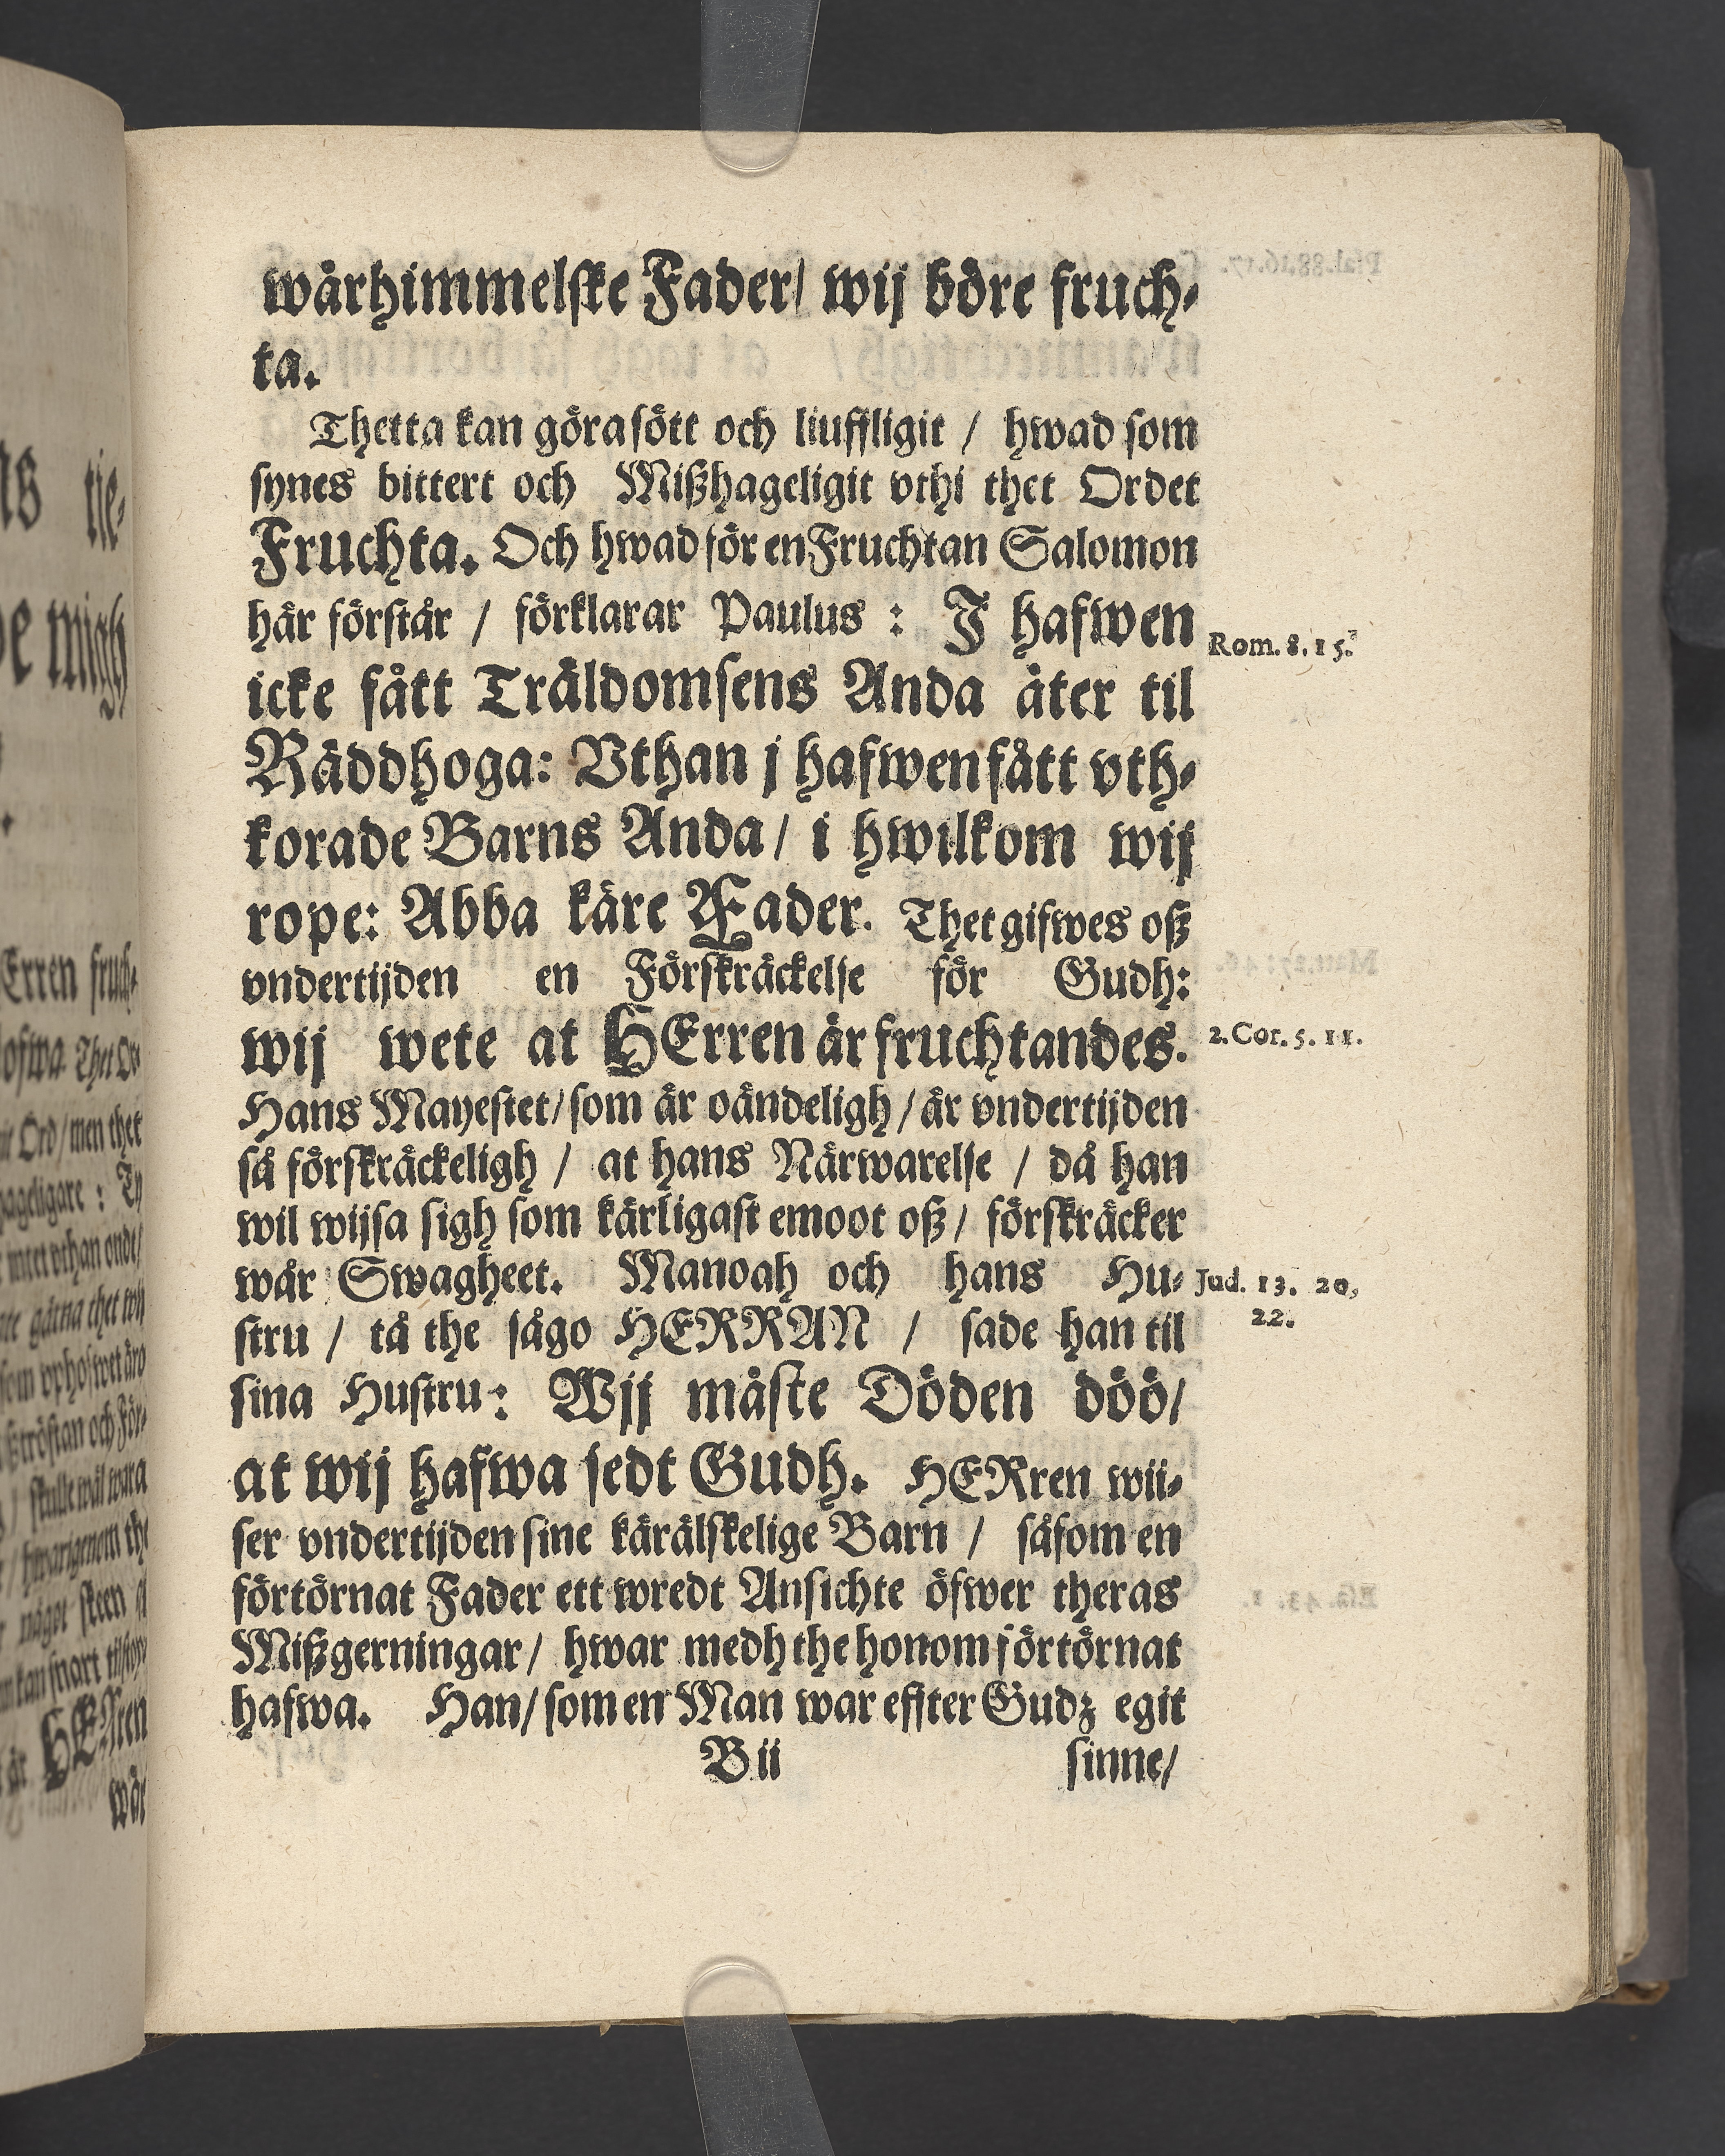 wårhimmelske Fader/ wij böre fruch-
ta.
Thetta kan göra sött och liuffligit / hwad som
synes bittert och Mißhageligit vthi thet Ordet
Fruchta. Och hwad för en Fruchtan Salomon
här förstår / förklarar Paulus : J hafwen
Rom. 8. 15.
icke fått Träldomsens Anda åter til
Räddhoga: Vthan j hafwen fått vth-
korade Barns Anda / i hwilkom wij
rope: Abba käre Fader. Thet gifwes oß
vndertijden en Förskräckelse för Gudh:
wij wete at HErren är fruchtandes.
2. Cor. 5. 11.
Hans Mayestet / som är oändeligh / är vndertijden
så förskräckeligh / at hans Närwarelse / då han
wil wijsa sigh som kärligast emoot oß / förskräcker
wår Swagheet. Manoah och hans Hu-
Jud. 13. 20,
22.
stru / tå the sågo HERRAN / sade han til
sina Hustru: Wij måste Döden döö/
at wij hafwa sedt Gudh. HERren wii-
ser vndertijden sine kärälskelige Barn / såsom en
förtörnat Fader ett wredt Ansichte öfwer theras
Mißgerningar / hwar medh the honom förtörnat
hafwa. Han / som en Man war effter Gudz egit
B ii
sinne/
ns tie-
de migh
Erren fruch-
lofwa Thet Or-
Ord / men thet
hageligare : Ty
intet vthan ondt/
gärna thet wij
som vphofwet äro
tröstan och För-
/ skulle wäl wara
/ hwarigenom the
något skeen
kan snart
är HERren
wår